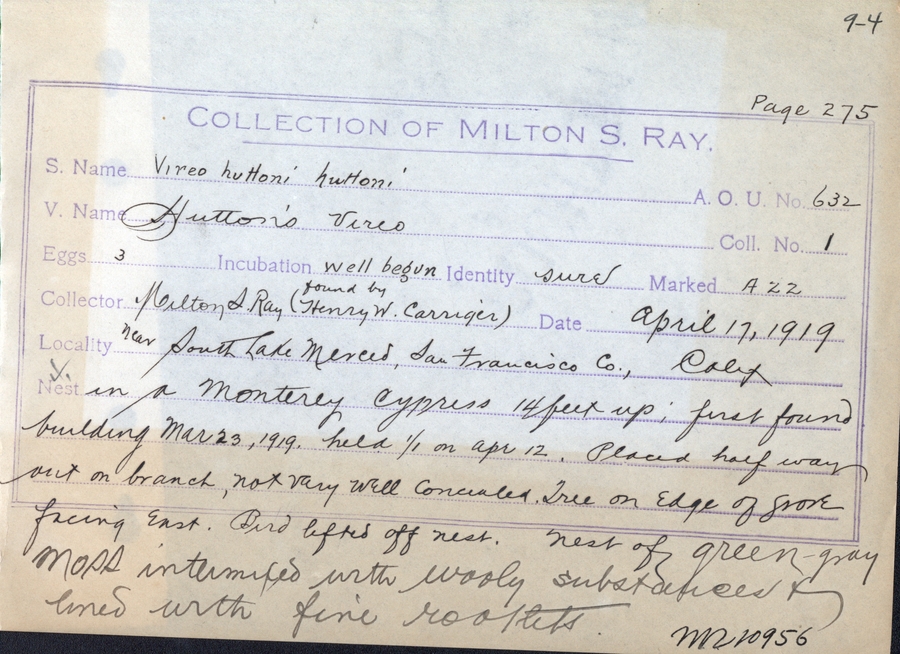 9-4
Page 275
COLLECTION OF MILTON S. RAY.
S. Name Vireo huttoni huttoni A. O. U. No. 632
V. Name Hutton's Vireo Coll. No. 1
Eggs 3 Incubation well begun Identity sure Marked A 22
found by
Collector Milton S Ray (Henry W. Carriger) Date April 17, 1919
Locality near South Lake Merced, San Francisco Co., Calif
Nest in a Monterey cypress 14 feet up; first found
building Mar 23, 1919. held 1/1 on apr 12. Placed half way
out on branch, not vary well concealed. Tree on Edge of grove
facing East. Bird lifted off nest. nest of green-gray
moss intermixed with wooly substances &
lined with fine rootlets.
10956